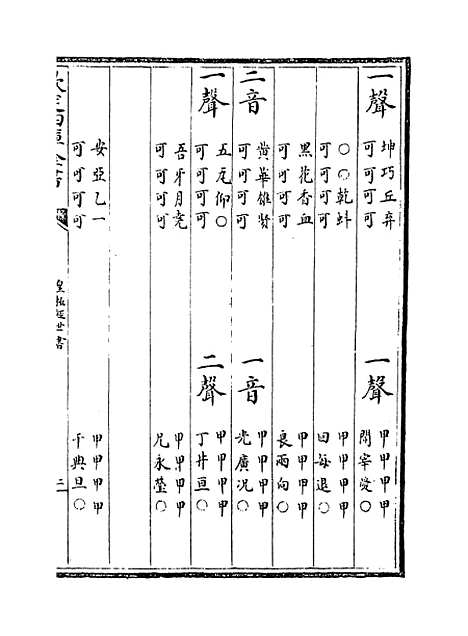 一聲 坤巧丘弃
可可可可
一聲 甲甲甲甲
開宰愛○
○○乾蚪
可可可可
甲甲甲甲
回每退○
黑花香血
可可可可
甲甲甲甲
良兩向○
二音 黃華雄賢
可可可可
一音 甲甲甲甲
光廣況○
一聲 五瓦仰○
可可可可
二聲 甲甲甲甲
丁井亘○
吾牙月堯
可可可可
甲甲甲甲
兄永瑩○
安亞乙一
可可可可
甲甲甲甲
千典旦○
欽定四庫全書
皇極經世書
三